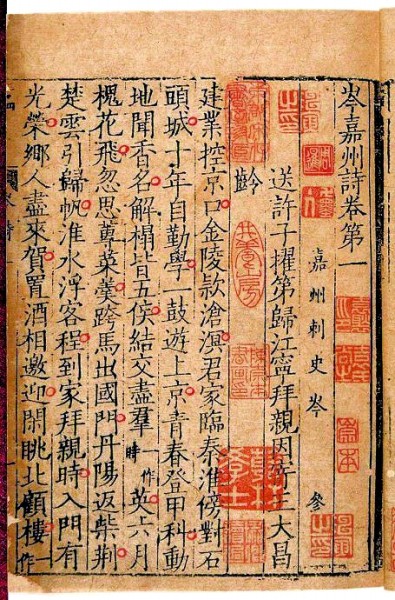 岑嘉州詩卷第一
嘉州刺史岑 參
送許子擢第歸江寧拜親因寄王大昌
齡
建業控京口金陵款滄溟君家臨秦淮傍對石
頭城十年自勤學一鼓遊上京青春登甲科動
地聞香名解榻皆五侯結交盡羣一作時英六月
槐花飛忽思蓴菜羹跨馬出國門丹陽返柴荆
楚雲引歸帆淮水浮客程到家拜親時入門有
光榮鄉人盡來賀置酒相邀迎閑眺北顧樓作